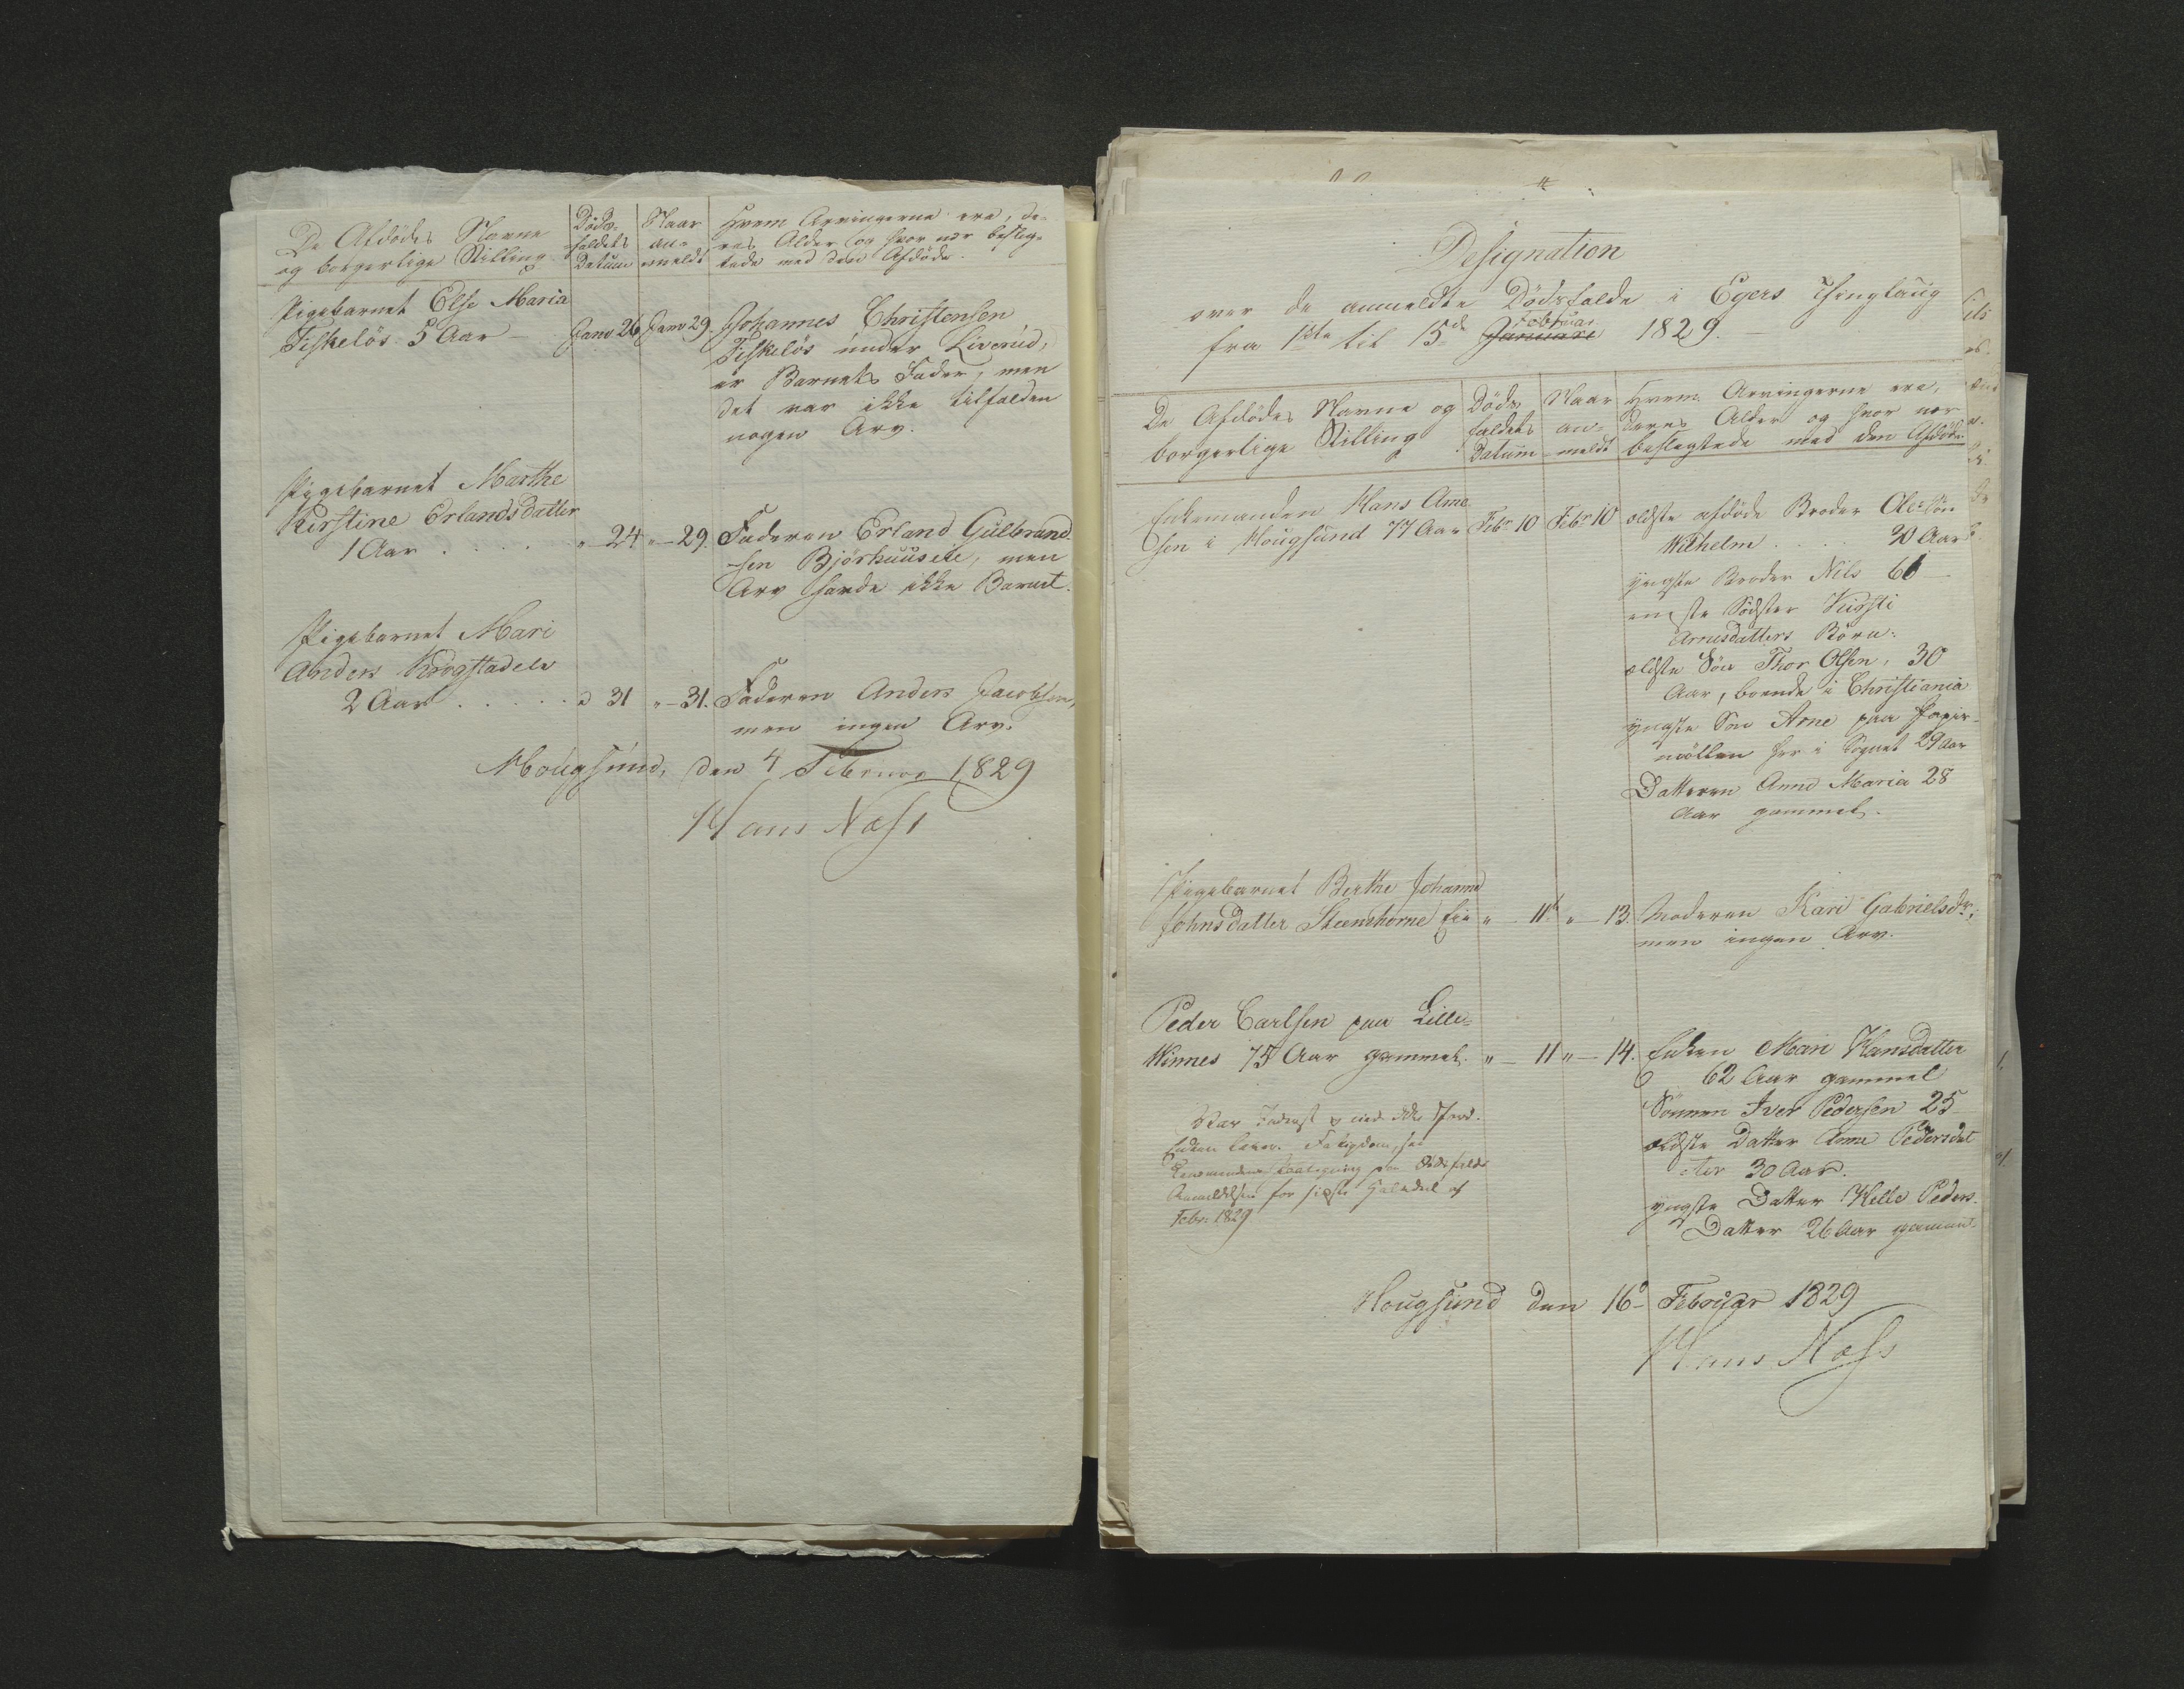 De Afdödes Navne
og borgerlige Stilling
Döds-
faldets
Datum
Naar
an-
meldt
Hvem Arvingerne ere, de-
res Alder og hvor nær beslæg-
tede med den Afdöde.
Pigebarnet Else Maria
Fiskelös 5 Aar - Janv 26 Janv 29. Johannes Christensen
Fiskelös under Liverud,
er Barnets Fader, men
det var ikke tilfalden
nogen Arv.
Pigebarnet Marthe
Kirstine Erlandsdatter
1 Aar . . . . . " - 24 " - 29. Faderen Erland Gulbrand-
sen Björhuuseie, men
Arv havde ikke Barnet.
Pigebarnet Mari
Anders Krogstadeie
2 Aar . . . . . " 31 " - 31. Faderen Anders Jacobsen,
men ingen Arv.
Hougsund, den 4 Februar 1829
Hans Næss
Designation
over de anmeldte Dödsfalde i Egers Thinglaug
fra 1ste til 15de Januari Februar 1829.
De Afdödes Navne og
borgerlige Stilling
Döds
faldets
Datum
Naar
an-
meldt
Hvem Arvingerne ere,
deres Alder og hvor nær
beslegtede med den Afdöde
Enkemanden Hans Arne
sen i Hougsund 77 Aar Febr 10 Febr 10 ældste afdöde Broder Oles Sön
Wilhelm . . . . 30 Aar
yngste Broder Nils 61 -
eneste Södster Kirsti
Arnesdatters Börn:
ældste Sön Thor Olsen, 30
Aar, boende i Christiania
yngste Sön Arne paa Papir-
möllen her i Sognet 29 Aar
Datteren Anne Maria 28
Aar gammel.
Pigebarnet Berthe Johanne
Johnsdatter Steenshorne Eie " - 11 " - 13. Moderen Kari Gabrielsdr,
men ingen Arv.
Peder Carlsen paa Lille-
Winnes 75 Aar gammel. " - 11 " - 14. Enken Mari Hansdatter
62 Aar gammel
Sönnen Iver Pedersen 25
ældste Datter Anne Pedersdat
ter 30 Aar.
yngste Datter Helle Peders-
Datter 26 Aar gammel
Var Inderst og
Enken lever. Fatigdom, see
Lensmandens Paategning paa Dödsfalds
Anmeldelsen for sidste Halvdeel af
Febr. 1829
Hougsund den 16de Februar 1829
Hans Næss